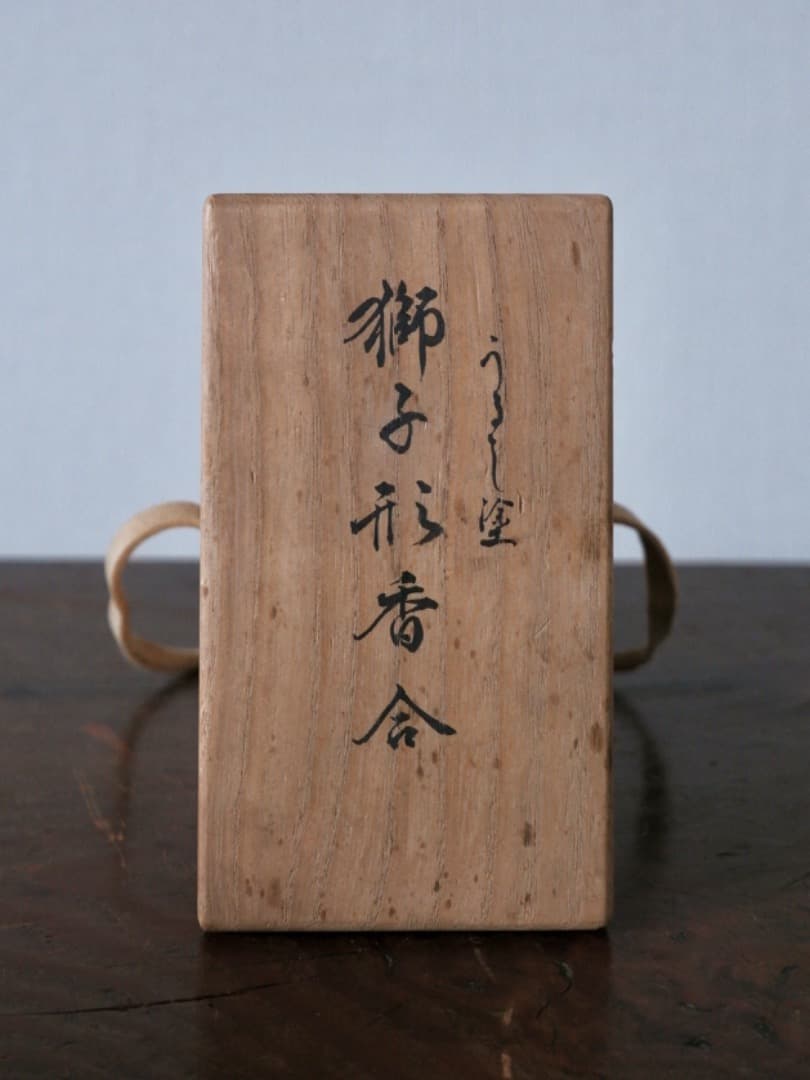 うるし塗
獅子形香合